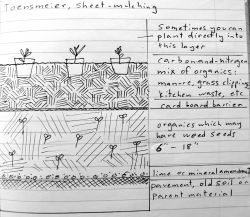 Toensmeier, sheet-mulching
Sometimes you can
plant directly into
this layer
carbon-and-nitrogen
mix of organics:
manure, grass clipping
kitchen waste, etc
card board barrier
organics which may
have weed seeds
6" - 18"
lime or mineral amendment
pavement, old soil or
parent material